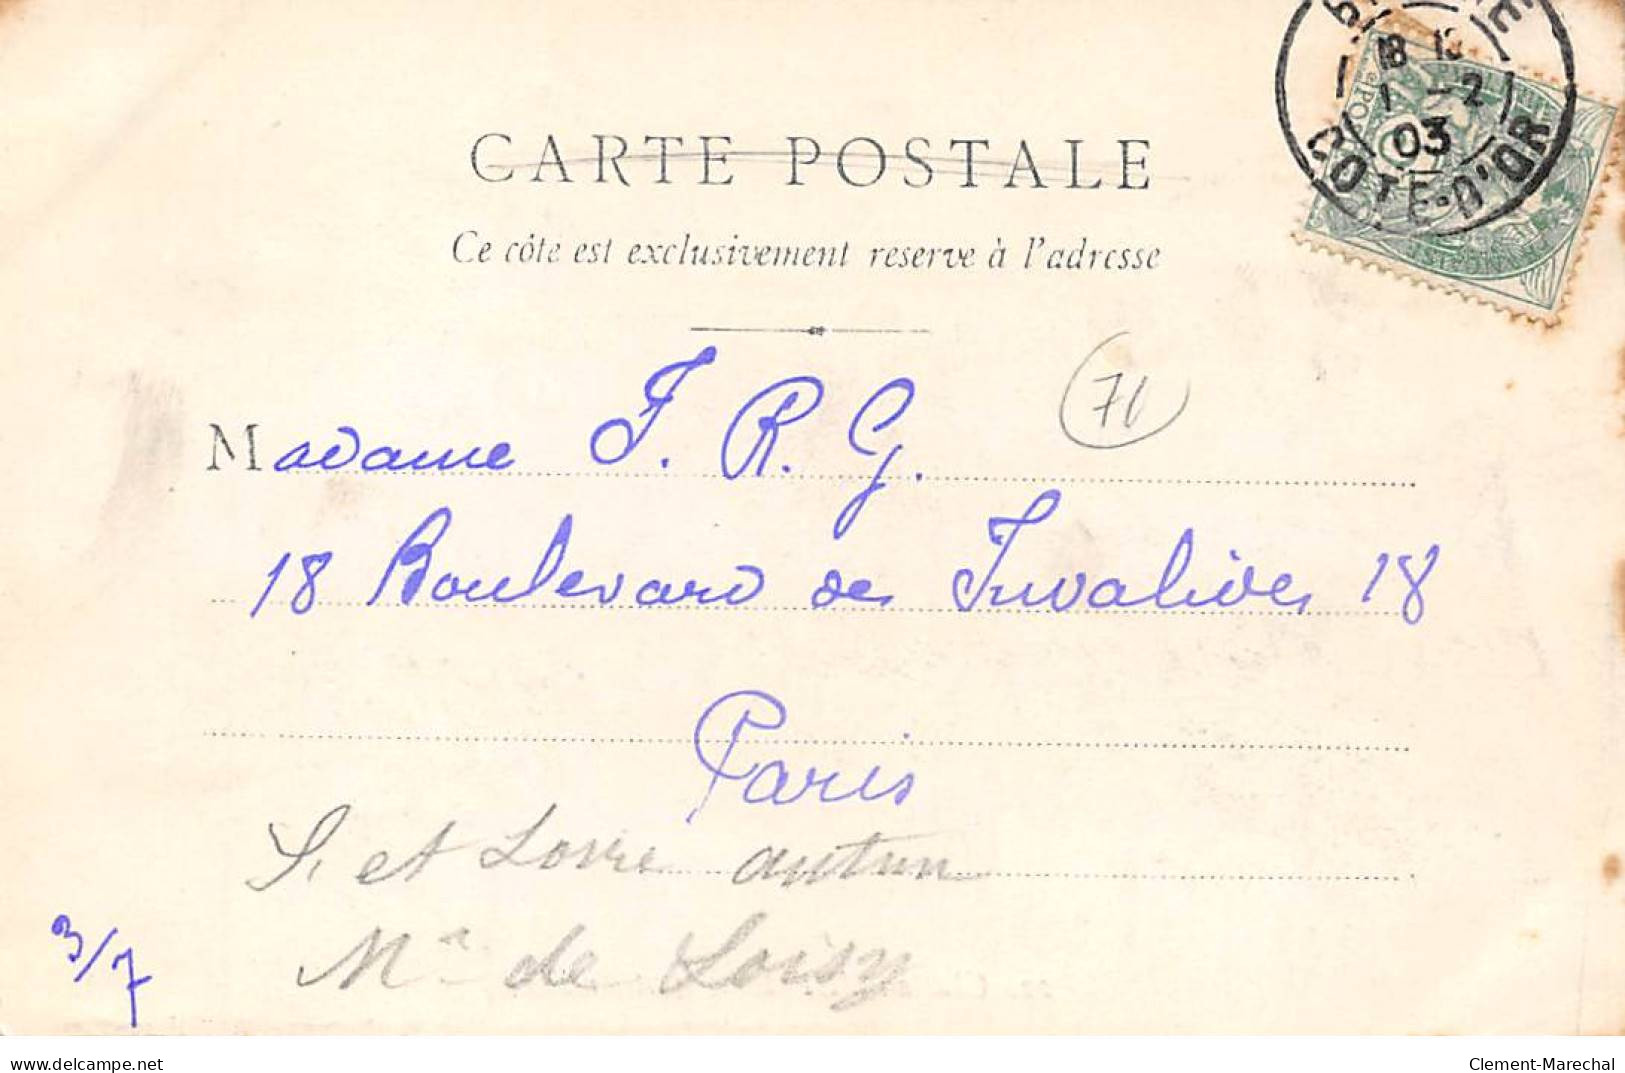 CARTE POSTALE
Ce côte est exclusivement reserve à l'adresse
18
1 -2
03
COTE-D'OR
71
Madame F. R. G.
18 Boulevard des Invalides 18
Paris
S. et Loire autun
Mn de Loisy
3/7
delcampe.net
Clement-Marechal